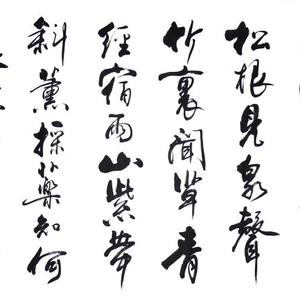 松根見泉聲
竹裏聞草青
經宿雨山紫帶
斜薰採藥知何